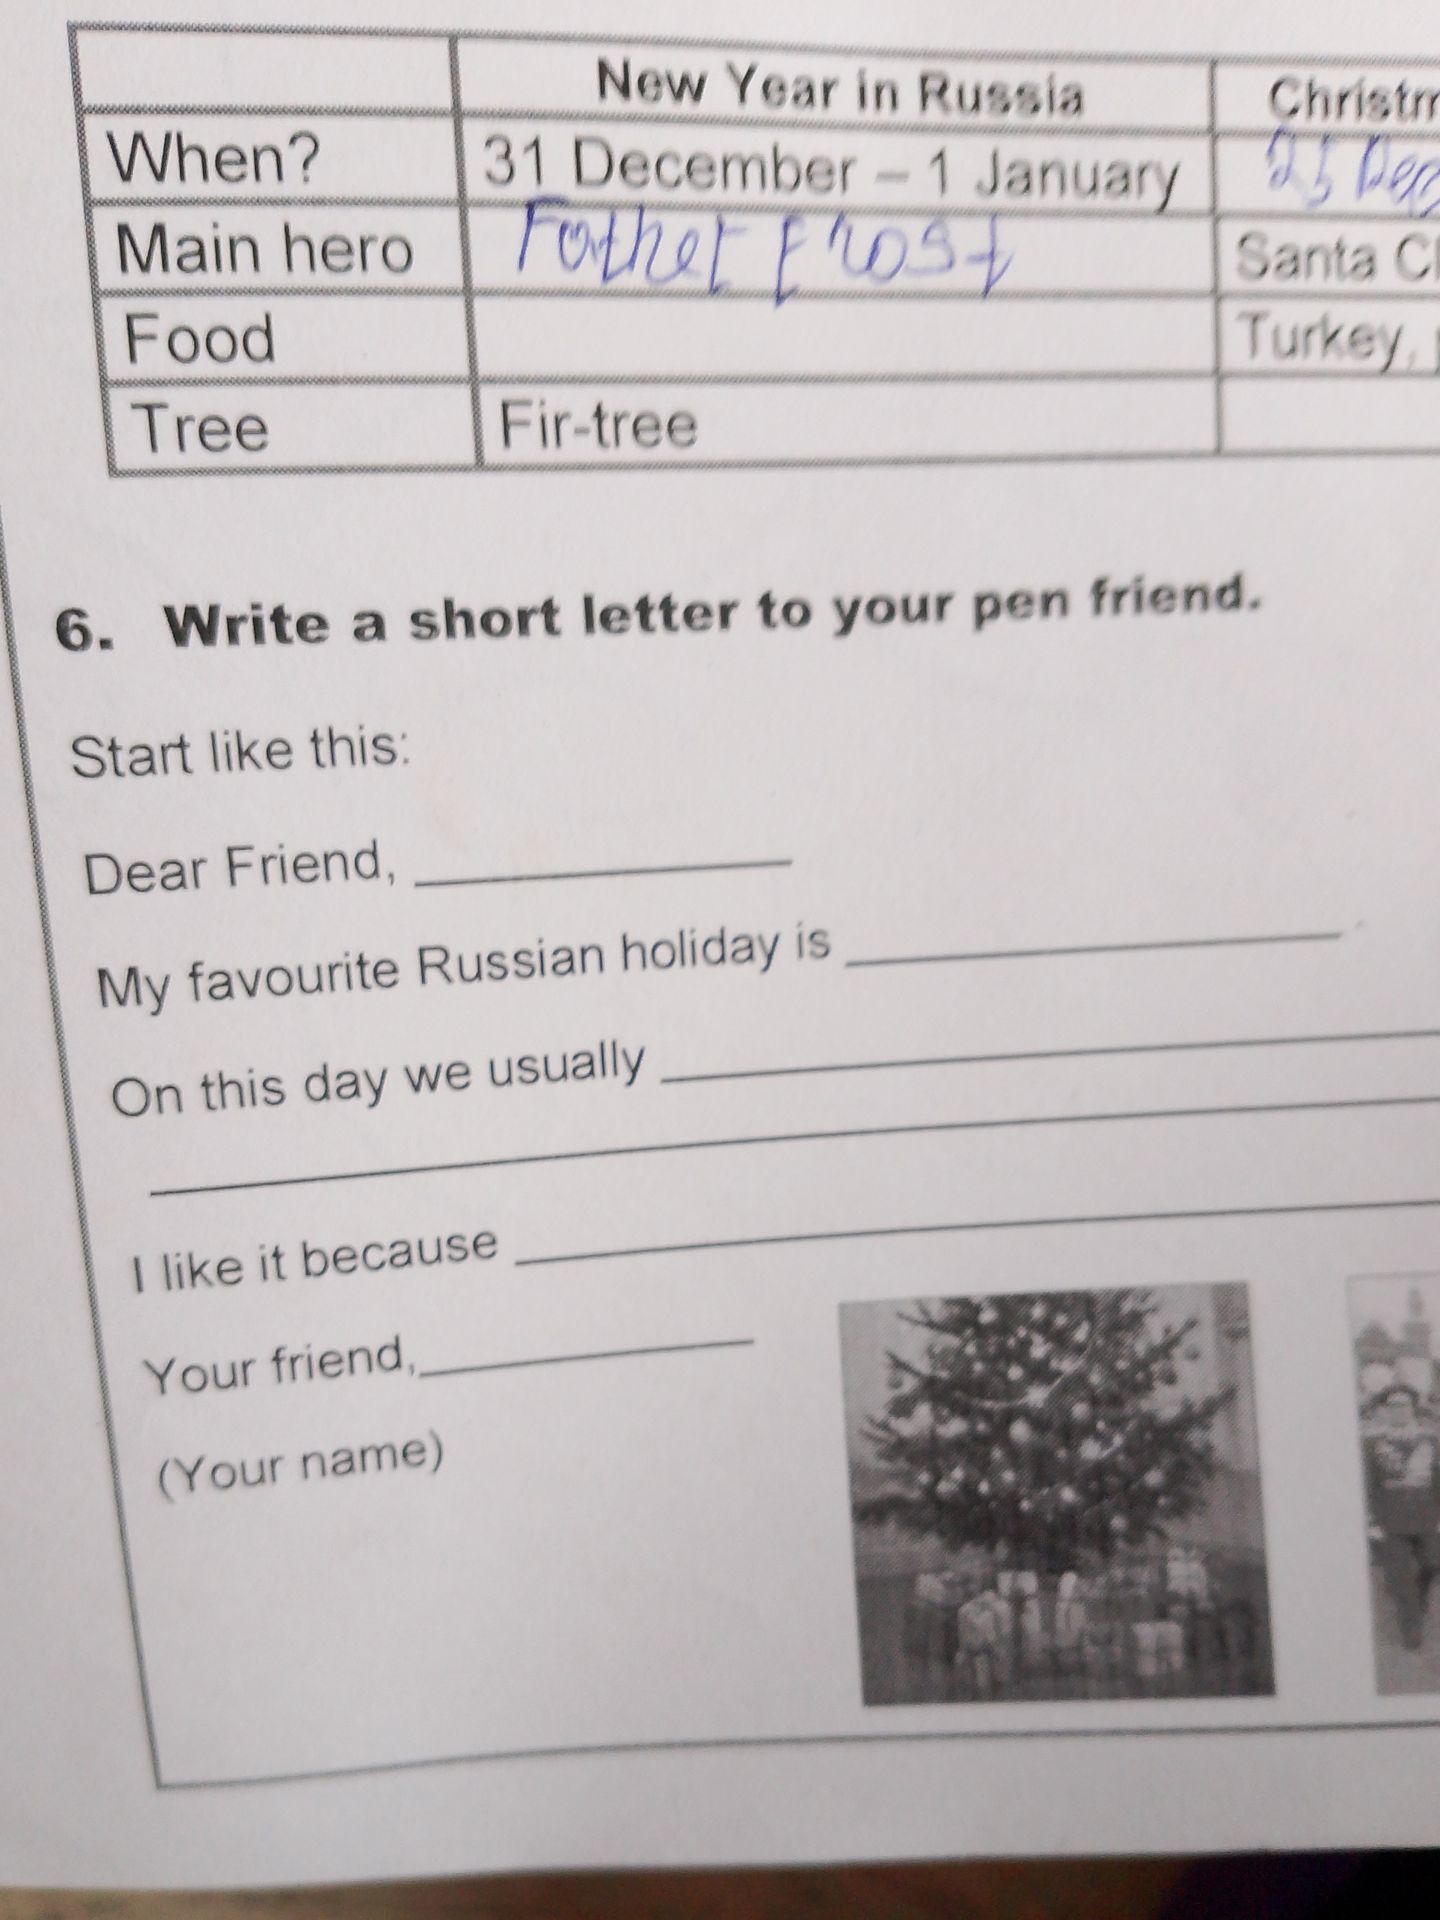 New Year in Russia
When? 31 December – 1 January 25
Main hero Father Frost Santa
Food Turkey,
Tree Fir-tree
6. Write a short letter to your pen friend.
Start like this:
Dear Friend, ___________
My favourite Russian holiday is ___________
On this day we usually ___________
___________
I like it because ___________
Your friend, ___________
(Your name)